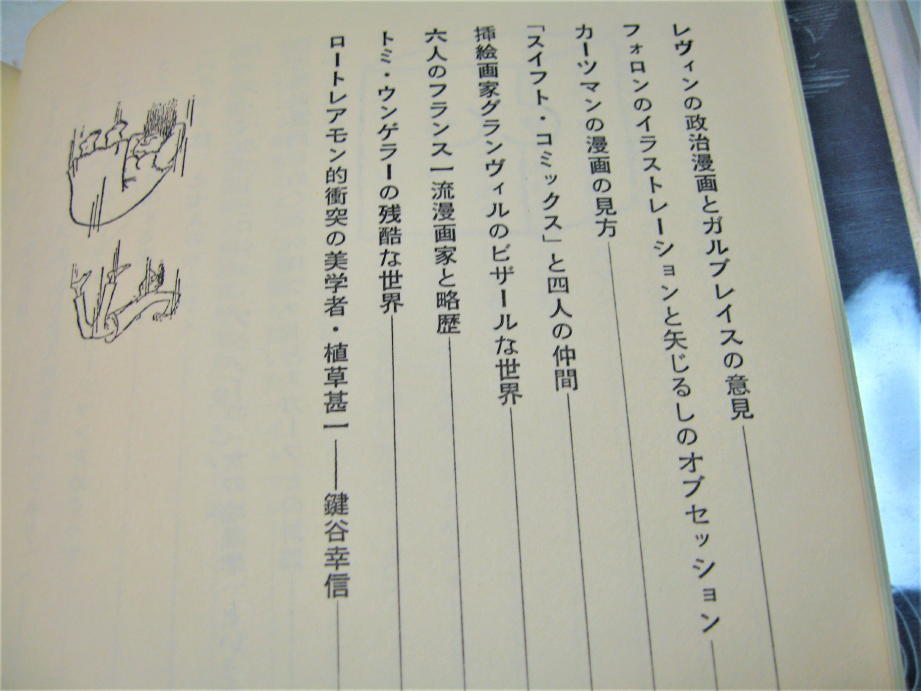 レヴィンの政治漫画とガルブレイスの意見
フォロンのイラストレーションと矢じるしのオブセッション
カーツマンの漫画の見方
「スイフト・コミックス」と四人の仲間
挿絵画家グランヴィルのビザールな世界
六人のフランス一流漫画家と略歴
トミ・ウンゲラーの残酷な世界
ロートレアモン的衝突の美学者・植草甚一――鍵谷幸信